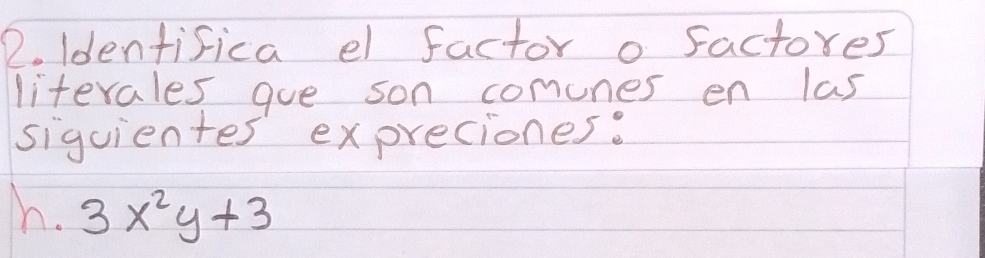 2. Identifica el factor o factores
literales que son comunes en las
siguientes expreciones:
h. 3x²y+3